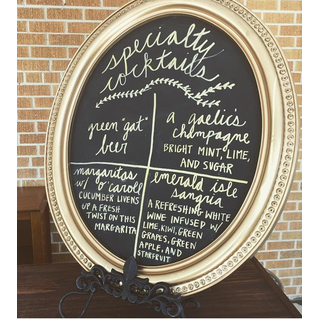 specialty
cocktails
green "gat"
beer
a gaelic's
champagne
BRIGHT MINT, LIME,
AND SUGAR
margaritas
w/ o'caroll
CUCUMBER LIVENS
UP A FRESH
TWIST ON THIS
MARGARITA
emerald isle
sangria
A REFRESHING WHITE
WINE INFUSED W/
LIME, KIWI, GREEN
GRAPES, GREEN
APPLE, AND
STARFRUIT